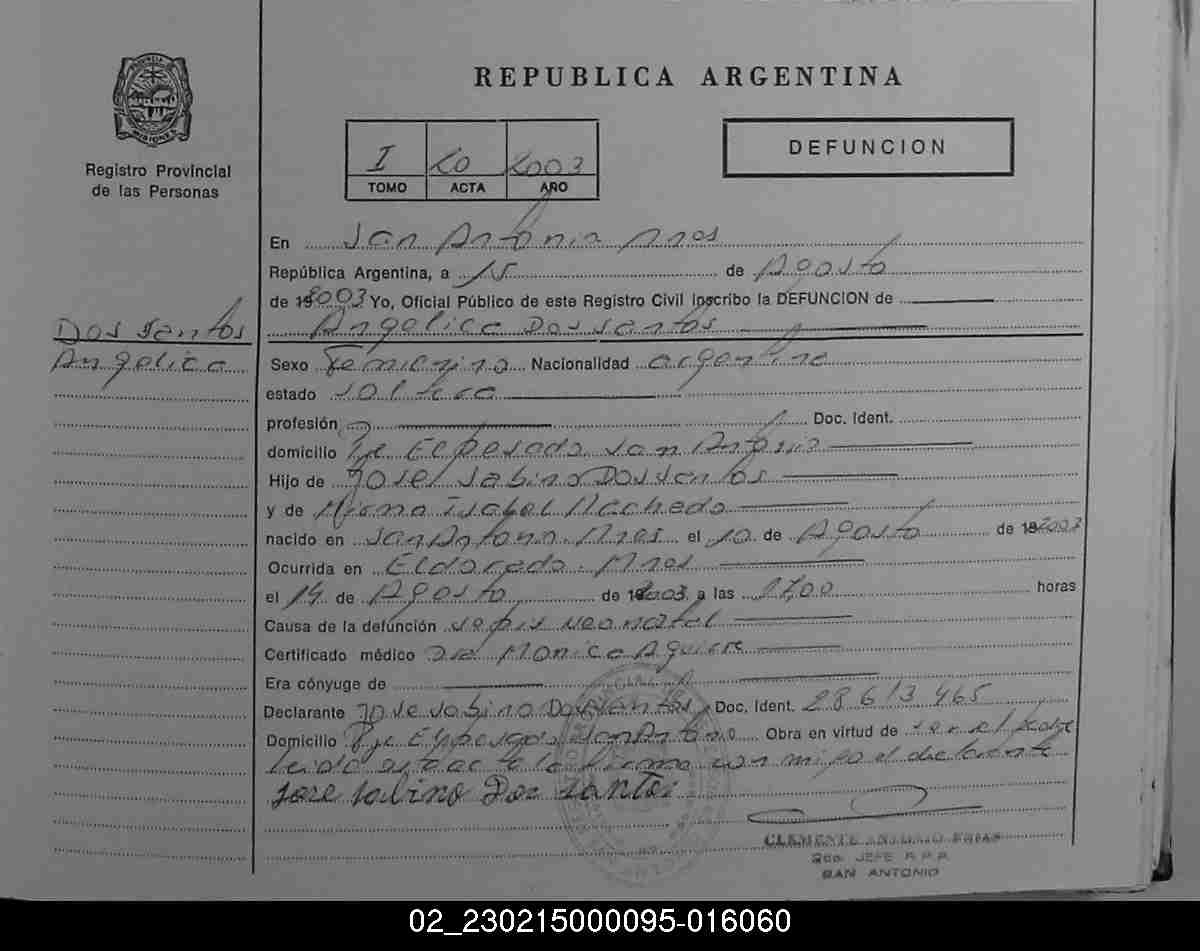 REPUBLICA ARGENTINA
PROVINCIA DE MISIONES
Registro Provincial
de las Personas
I 20 2003
TOMO ACTA AÑO
DEFUNCION
En San Antonio Mnes
República Argentina, a 15 de Agosto
de 19 2003 Yo, Oficial Público de este Registro Civil inscribo la DEFUNCION de
Angelica Dos santos
Dos santos
Angelica
Sexo Femenino Nacionalidad argentina
estado soltera
profesión Doc. Ident.
domicilio Pje El pesado San Antonio
Hijo de Jose Sabino Dos santos
y de Mirna Isabel Machado
nacido en San Antonio Mnes el 10 de Agosto de 19 2003
Ocurrida en Eldorado. Mnes
el 14 de Agosto de 19 2003 a las 17,00 horas
Causa de la defunción sepsis neonatal
Certificado médico Dra Monica Aguirre
Era cónyuge de
Declarante Jose sabino Dos santos Doc. Ident. 28 613 465
Domicilio Pje El pesado San Antonio Obra en virtud de ser el padre
leida esta acta la firma con migo el declarante
Jose sabino Dos santos
CLEMENTE ANTONIO FRIAS
2do. JEFE R.P.P.
SAN ANTONIO
02_230215000095-016060